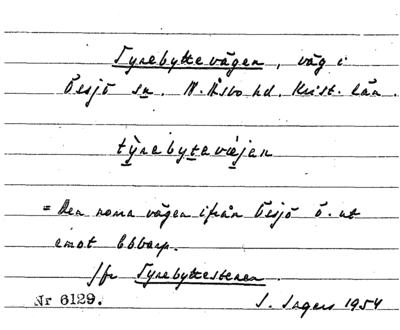 Tyrebyttevägen, väg i
Össjö sn. N. Åsbo hd. Krist. län.
tỳrebytavæjan
= Den norra vägen ifrån Össjö ö. ut
emot Ebbarp.
Jfr Tyrebyttestenen.
Nr 6129.
S. Ingers 1954